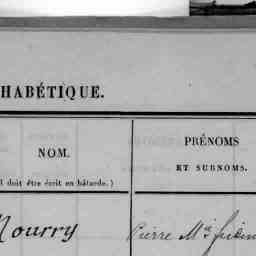 HABÉTIQUE.
NOM.
l doit être écrit en bâtarde.)
PRÉNOMS
ET SURNOMS.
Mourry
Pierre Mie